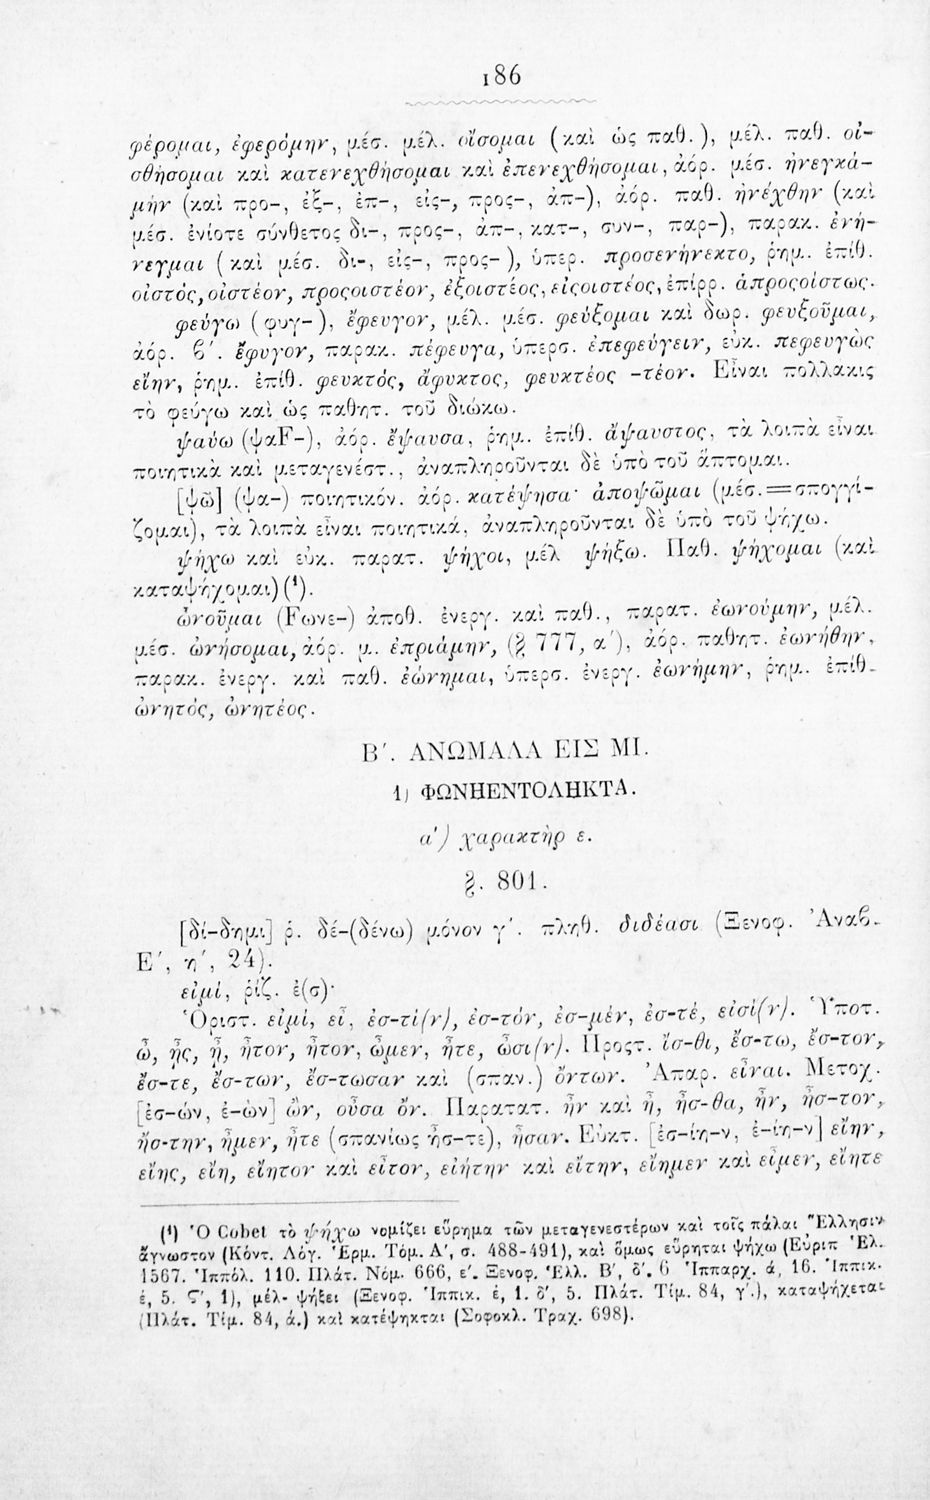 186
φέρομαι, ἐφερόμην, μέσ. μέλ. οἴσομαι (καὶ ὡς παθ.), μέλ. παθ. οἰ-
σθήσομαι καὶ κατενεχθήσομαι καὶ ἐπενεχθήσομαι, ἀόρ. μέσ. ἠνεγκά-
μην (καὶ προ-, ἐξ-, ἐπ-, εἰς-, προς-, ἀπ-), ἀόρ. παθ. ἠνέχθην (καὶ
μέσ. ἐνίοτε σύνθετος δι-, προς-, ἀπ-, κατ-, συν-, παρ-), παρακ. ἐνή-
νεγμαι (καὶ μέσ. δι-, εἰς-, προς-), ὑπερ. προσενήνεκτο, ῥημ. ἐπίθ.
οἰστός, οἰστέον, προςοιστέον, ἐξοιστέος, εἰςοιστέος, ἐπίρρ. ἀπροςοίστως.
φεύγω (φυγ-), ἔφευγον, μέλ. μέσ. φεύξομαι καὶ δωρ. φευξοῦμαι,
ἀόρ. β΄. ἔφυγον, παρακ. πέφευγα, ὑπερσ. ἐπεφεύγειν, εὐκ. πεφευγὼς
εἴην, ῥημ. ἐπίθ. φευκτός, ἄφυκτος, φευκτέος -τέον. Εἶναι πολλακις
τὸ φεύγω καὶ ὡς παθητ. τοῦ διώκω.
ψαύω (ψαF-), ἀόρ. ἔψαυσα, ῥημ. ἐπίθ. ἄψαυστος, τὰ λοιπὰ εἶναι
ποιητικὰ καὶ μεταγενέστ., ἀναπληροῦνται δὲ ὑπὸ τοῦ ἅπτομαι.
[ψῶ] (ψα-) ποιητικόν. ἀόρ. κατέψησα· ἀποψῶμαι (μέσ.=σπογγί-
ζομαι), τὰ λοιπὰ εἶναι ποιητικά, ἀναπληροῦνται δὲ ὑπὸ τοῦ ψήχω.
ψήχω καὶ εὐκ. παρατ. ψήχοι, μέλ ψήξω. Παθ. ψήχομαι (καὶ
καταψήχομαι)(¹).
ὠνοῦμαι (Fωνε-) ἀποθ. ἐνεργ. καὶ παθ., παρατ. ἐωνούμην, μέλ.
μέσ. ὠνήσομαι, ἀόρ. μ. ἐπριάμην, (§ 777, α΄), ἀόρ. παθητ. ἐωνήθην,
παρακ. ἐνεργ. καὶ παθ. ἐώνημαι, ὑπερσ. ἐνεργ. ἐωνήμην, ῥημ. ἐπίθ.
ὠνητός, ὠνητέος.
Β΄. ΑΝΩΜΑΛΑ ΕΙΣ ΜΙ.
1) ΦΩΝΗΕΝΤΟΛΗΚΤΑ.
α΄) χαρακτὴρ ε.
§. 801.
[δί-δημι] ῥ. δέ-(δένω) μόνον γ΄. πληθ. διδέασι (Ξενοφ. Ἀναβ.
Ε΄, η΄, 24).
εἰμί, ῥίζ. ἐ(σ)·
Ὁριστ. εἰμί, εἶ, ἐσ-τί(ν), ἐσ-τόν, ἐσ-μέν, ἐσ-τέ, εἰσί(ν). Ὑποτ.
ὦ, ᾖς, ᾖ, ἦτον, ἦτον, ὦμεν, ἦτε, ὦσι(ν). Προςτ. ἴσ-θι, ἔσ-τω, ἔσ-τον,
ἔσ-τε, ἔσ-των, ἔσ-τωσαν καὶ (σπαν.) ὄντων. Ἀπαρ. εἶναι. Μετοχ.
[ἐσ-ών, ἐ-ὼν] ὤν, οὖσα ὄν. Παρατατ. ἦν καὶ ἦ, ἦσ-θα, ἦν, ἦσ-τον,
ἤσ-την, ἦμεν, ἦτε (σπανίως ἦσ-τε), ἦσαν. Εὐκτ. [ἐσ-ίη-ν, ἐ-ίη-ν] εἴην,
εἴης, εἴη, εἴητον καὶ εἶτον, εἰήτην καὶ εἴτην, εἴημεν καὶ εἶμεν, εἴητε
(¹) Ὁ Cobet τὸ ψήχω νομίζει εὕρημα τῶν μεταγενεστέρων καὶ τοῖς πάλαι Ἕλλησιν
ἄγνωστον (Κόντ. Λόγ. Ἑρμ. Τόμ. Α΄, σ. 488-491), καὶ ὅμως εὕρηται ψήχω (Εὐριπ Ἑλ.
1567. Ἱππόλ. 110. Πλάτ. Νόμ. 666, ε΄. Ξενοφ. Ἑλλ. Β΄, δ΄. 6 Ἱππαρχ. ά, 16. Ἱππικ.
έ, 5. Ϛ΄, 1), μέλ. ψήξει (Ξενοφ. Ἱππικ. έ, 1. δ΄, 5. Πλάτ. Τίμ. 84, γ΄.), καταψήχεται
(Πλάτ. Τίμ. 84, ά.) καὶ κατέψηκται (Σοφοκλ. Τραχ. 698).